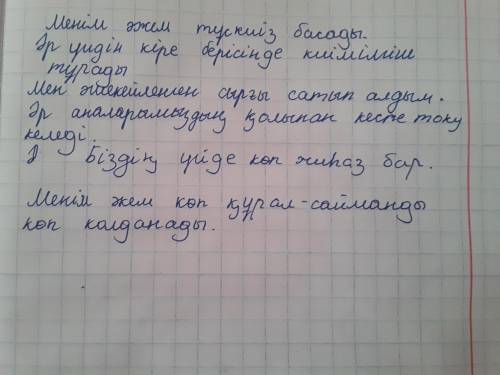 Менім әжем тускиіз басады.
Әр үйдін кіре берісінде киімілгіш
тұрады
Мен әшекейленген сырғы сатып алдым.
Әр аналарамыздың қолынан кесте току
келеді.
Біздің үйде көп жиһаз бар.
Менім әжем көп құрал-сайманды
көп колданады.